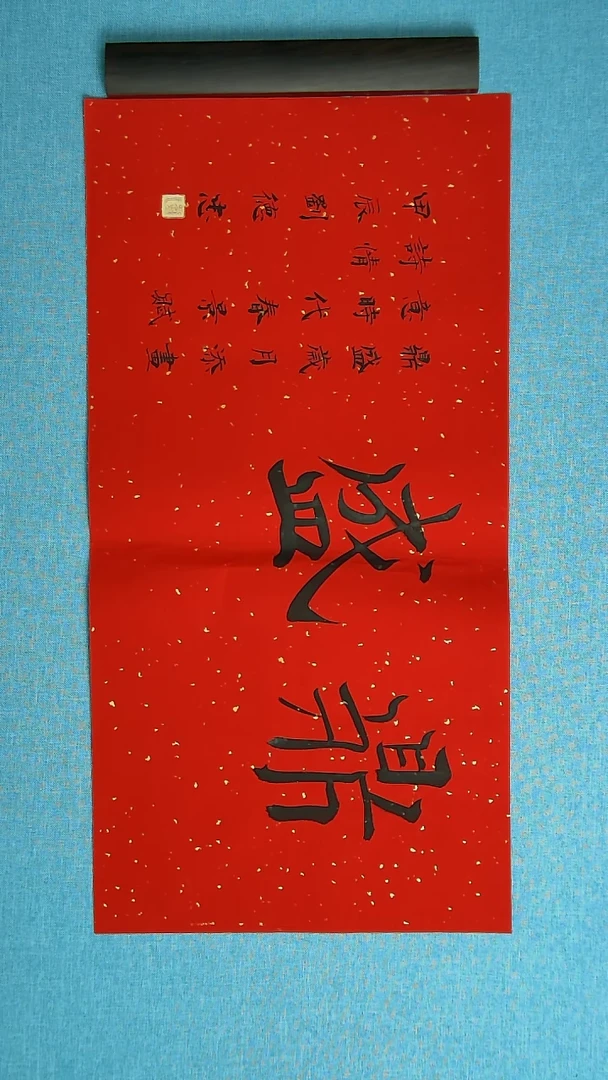 鼎盛
鼎盛歲月添畫
意時代春景賦
詩情
甲辰劉德忠